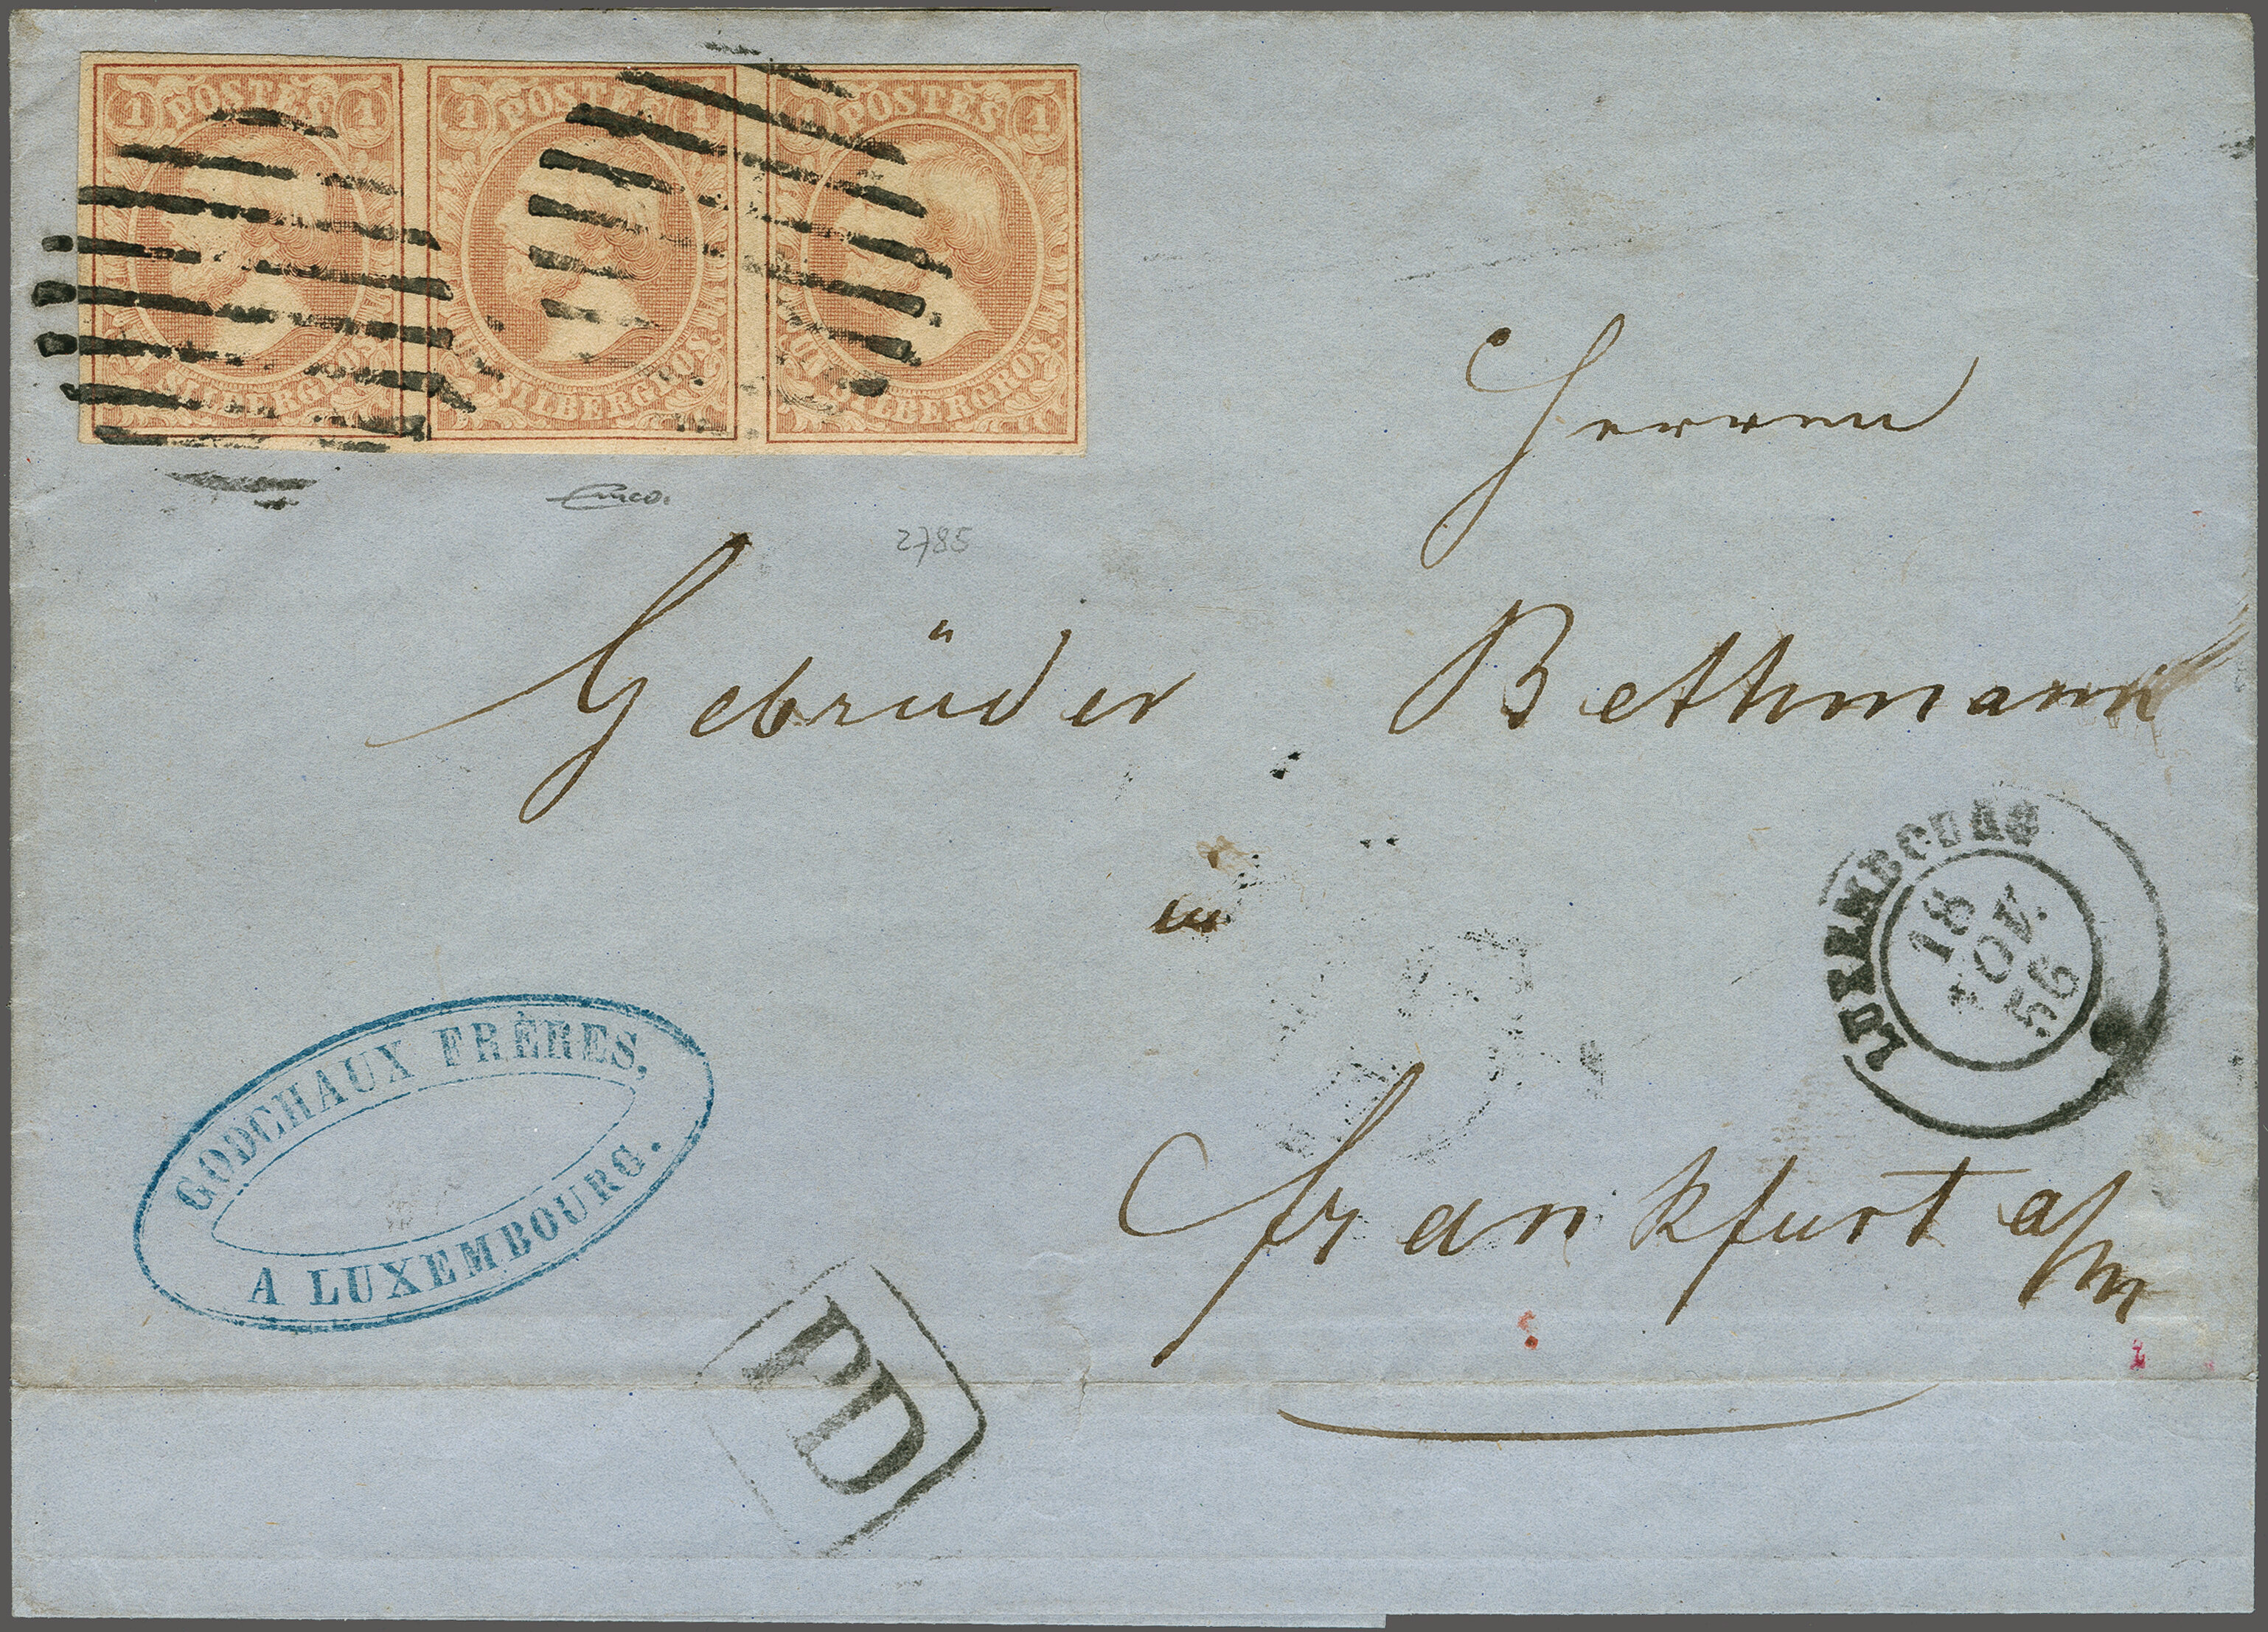 1 POSTES 1
UN SILBERGROS
1 POSTES 1
UN SILBERGROS
1 POSTES 1
UN SILBERGROS
2785
Herren
Gebrüder Bethmann
in
LUXEMBOURG
18
NOV.
56
Frankfurt a/m
GODCHAUX FRÈRES.
A LUXEMBOURG.
PD